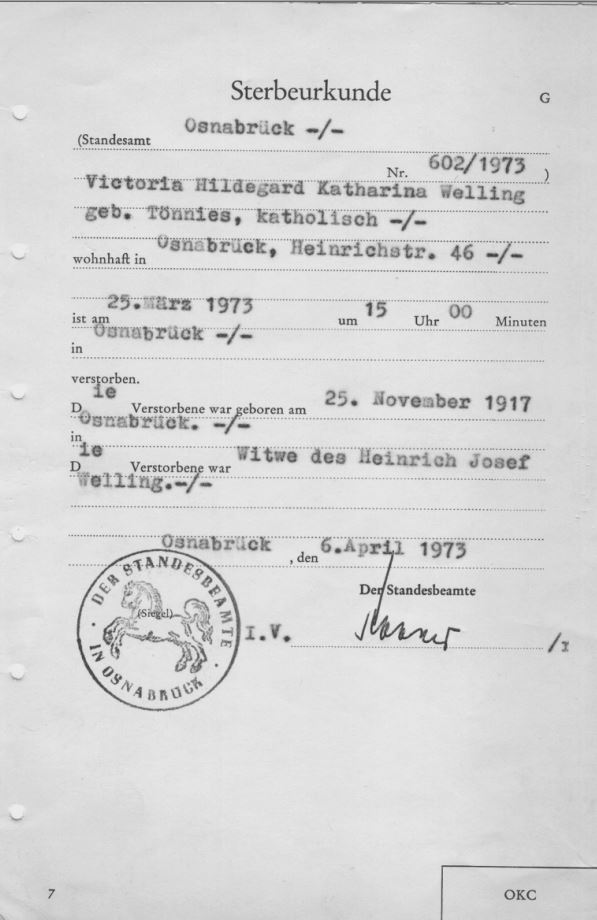 Sterbeurkunde
G
(Standesamt Osnabrück -/-
Nr. 602/1973 )
Victoria Hildegard Katharina Welling
geb. Tönnies, katholisch -/-
wohnhaft in Osnabrück, Heinrichstr. 46 -/-
ist am 25.März 1973 um 15 Uhr 00 Minuten
in Osnabrück -/-
verstorben.
Die Verstorbene war geboren am 25. November 1917
in Osnabrück. -/-
Die Verstorbene war Witwe des Heinrich Josef
Welling.-/-
Osnabrück , den 6.April 1973
Der Standesbeamte
DER STANDESBEAMTE
(Siegel)
IN OSNABRÜCK
I.V.
7
OKC